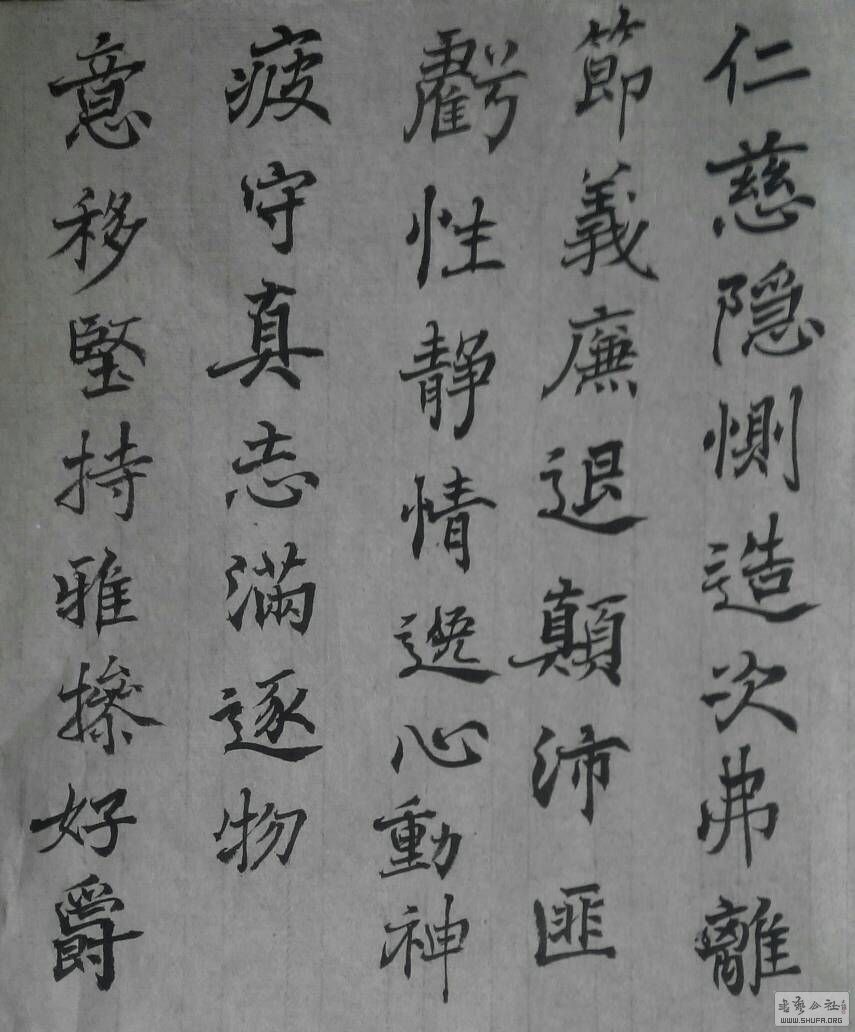 仁慈隱惻造次弗離
節義廉退顛沛匪
虧性静情逸心動神
疲守真志滿逐物
意移堅持雅操好爵
書藝公社
WWW.SHUFA.ORG